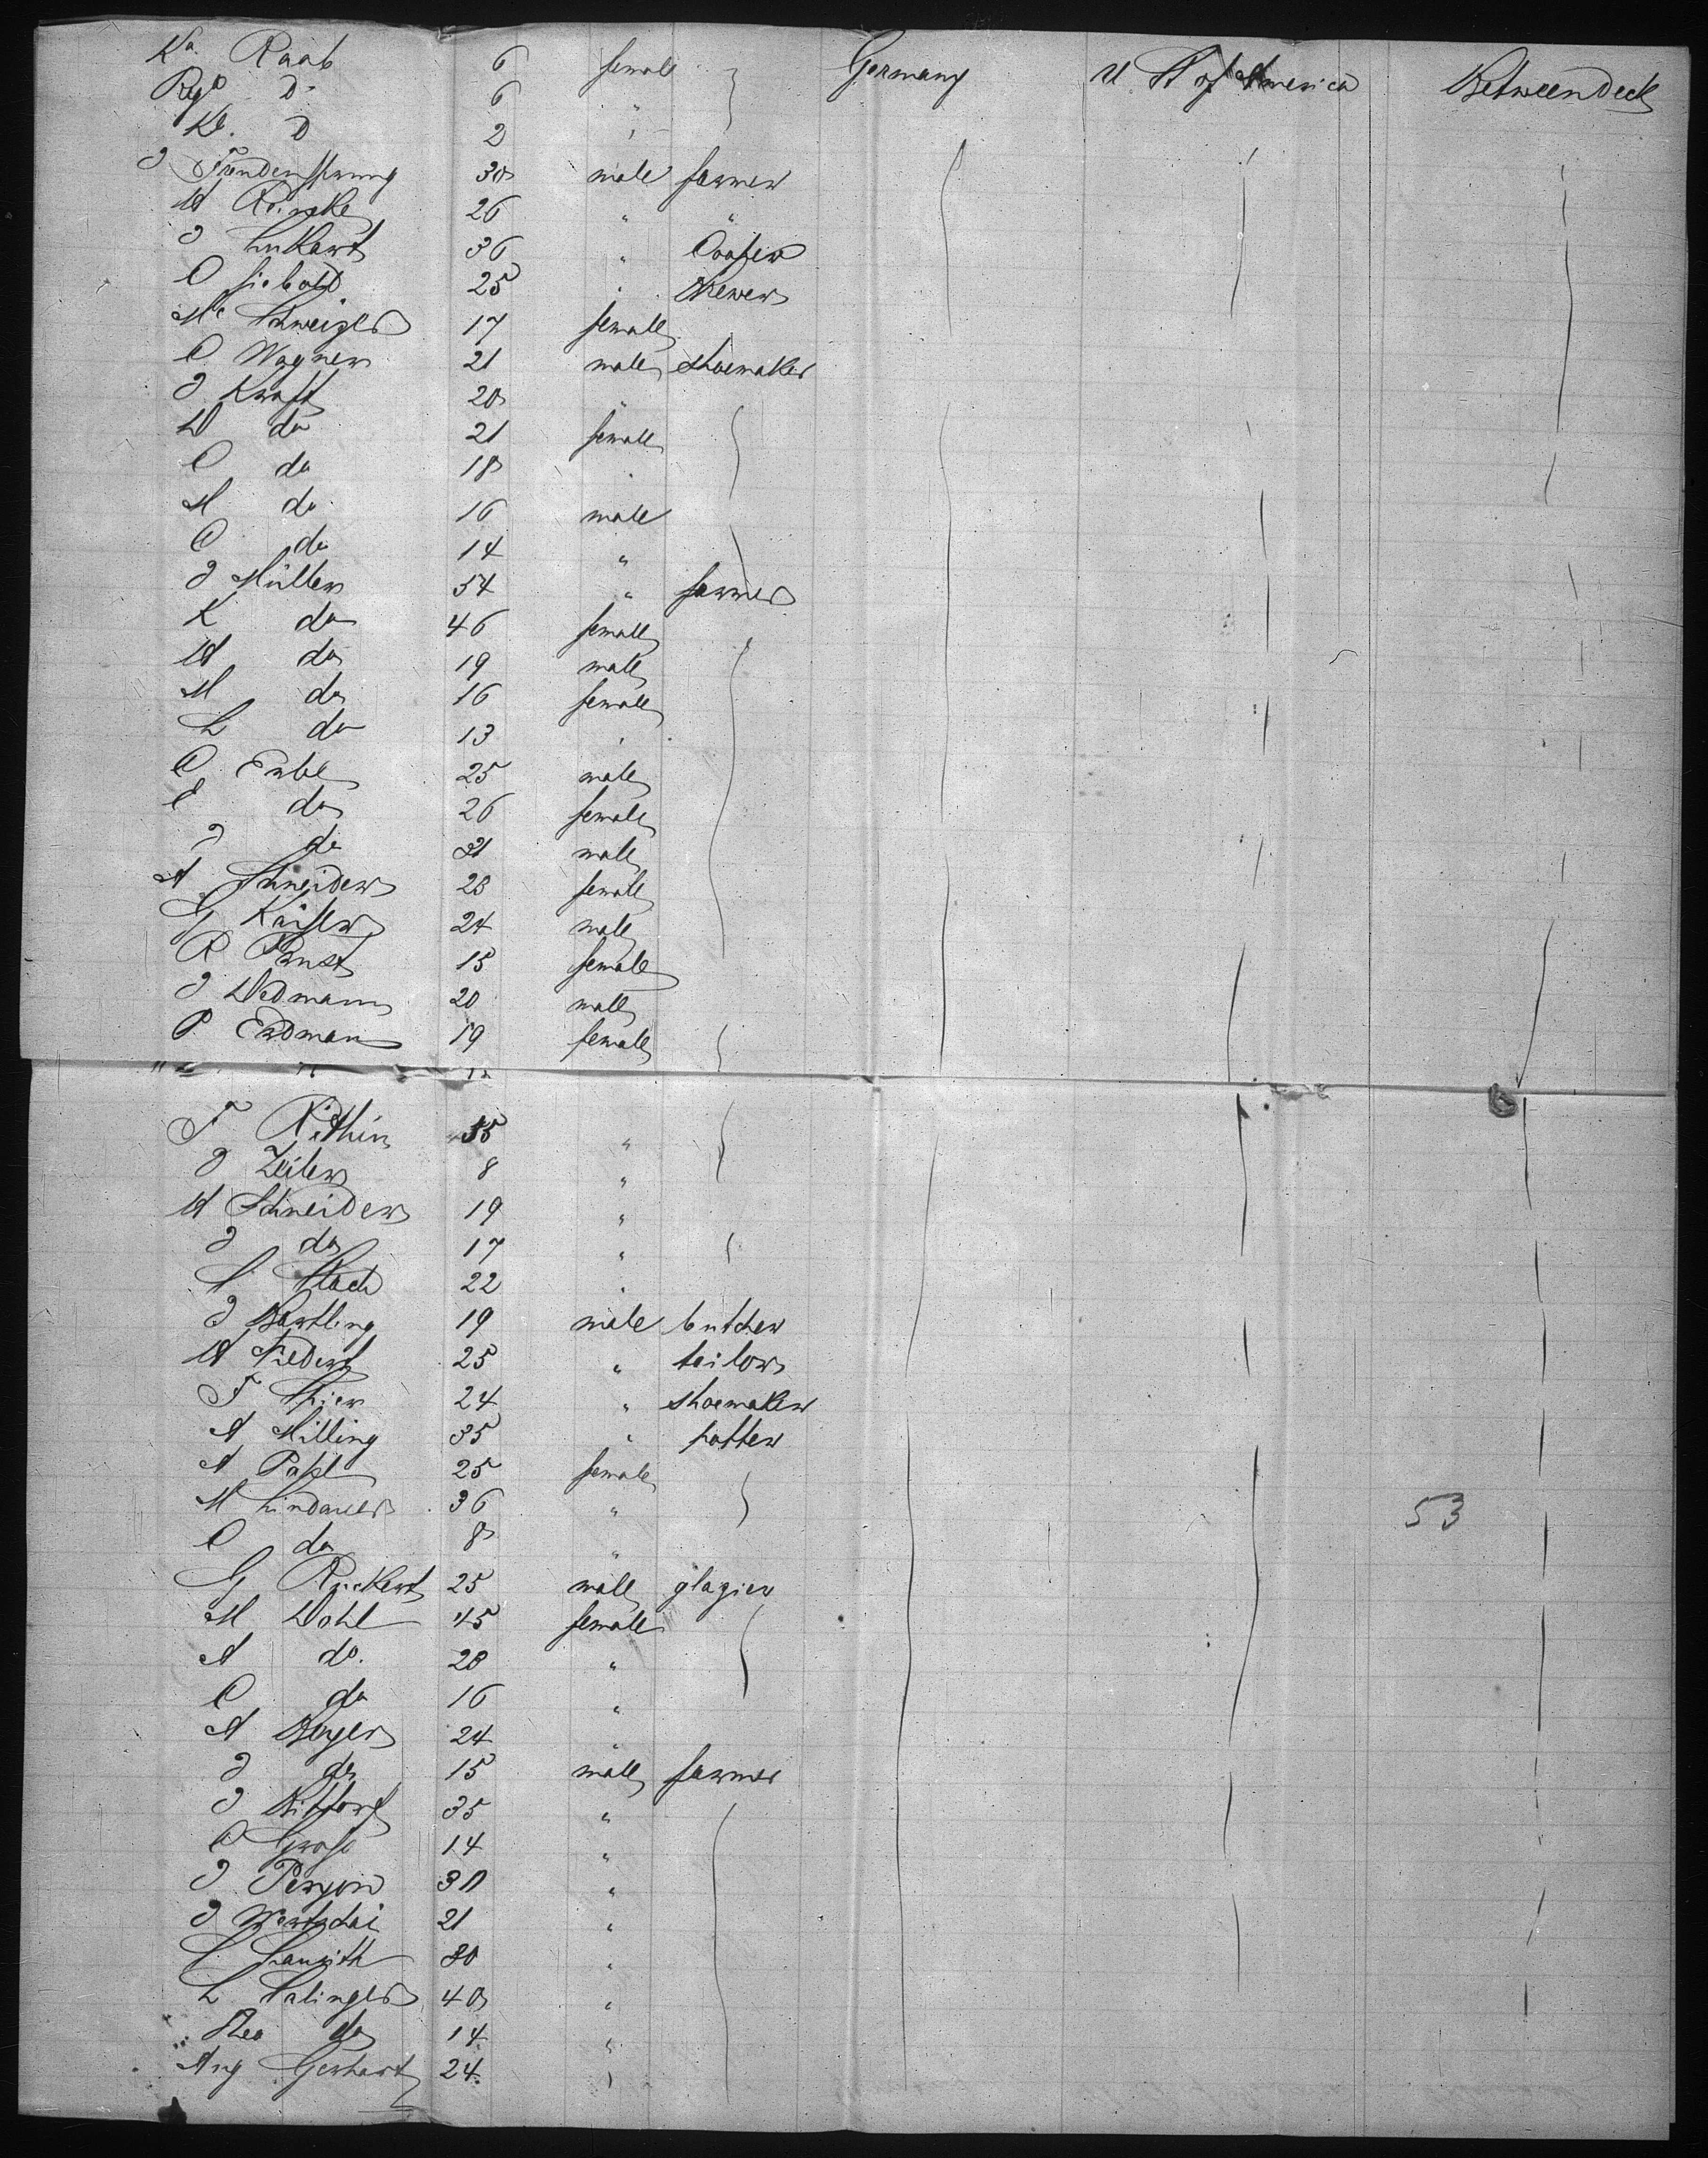 Ka Raab 6 female Germany U St of America Betweendeck
Rega Do 6 "
Kl. D 2 "
J Freudensprung 30 male farmer
W Reincke 26 " "
J Luckart 36 " Cooper
C Siebold 25 " Brewer
Me Schweizer 17 female
C Wagner 21 male shoemaker
J Kraft 20 "
W do 21 female
C do 18 "
M do 16 male
C do 14 "
J Müller 54 " farmer
K do 46 female
W do 19 male
M do 16 female
L do 13 "
C Erbe 25 male
E do 26 female
J do 21 male
A Schneider 23 female
G Kaiser 24 male
R Ernst 15 female
J Widmann 20 male
P Erdmann 19 female
F 55 "
J Zeiler 8 "
W Schneider 19 "
J do 17 "
S Bloch 22 "
J Bartling 19 male butcher
W 25 " teilor
F Thier 24 " shoemaker
A Milling 35 " potter
A Papst 25 female
M Lindauer 36 " 53
C do 8 "
G Rückert 25 male glazier
M Wohl 45 female
A do. 23 "
C do 16 "
A Beyer 24 "
J do 15 male farmer
J 35 "
C Grass 14 "
J 30 "
J 21 "
80 "
L Salinger 40 "
do 14 "
Aug Gerhart 24 "